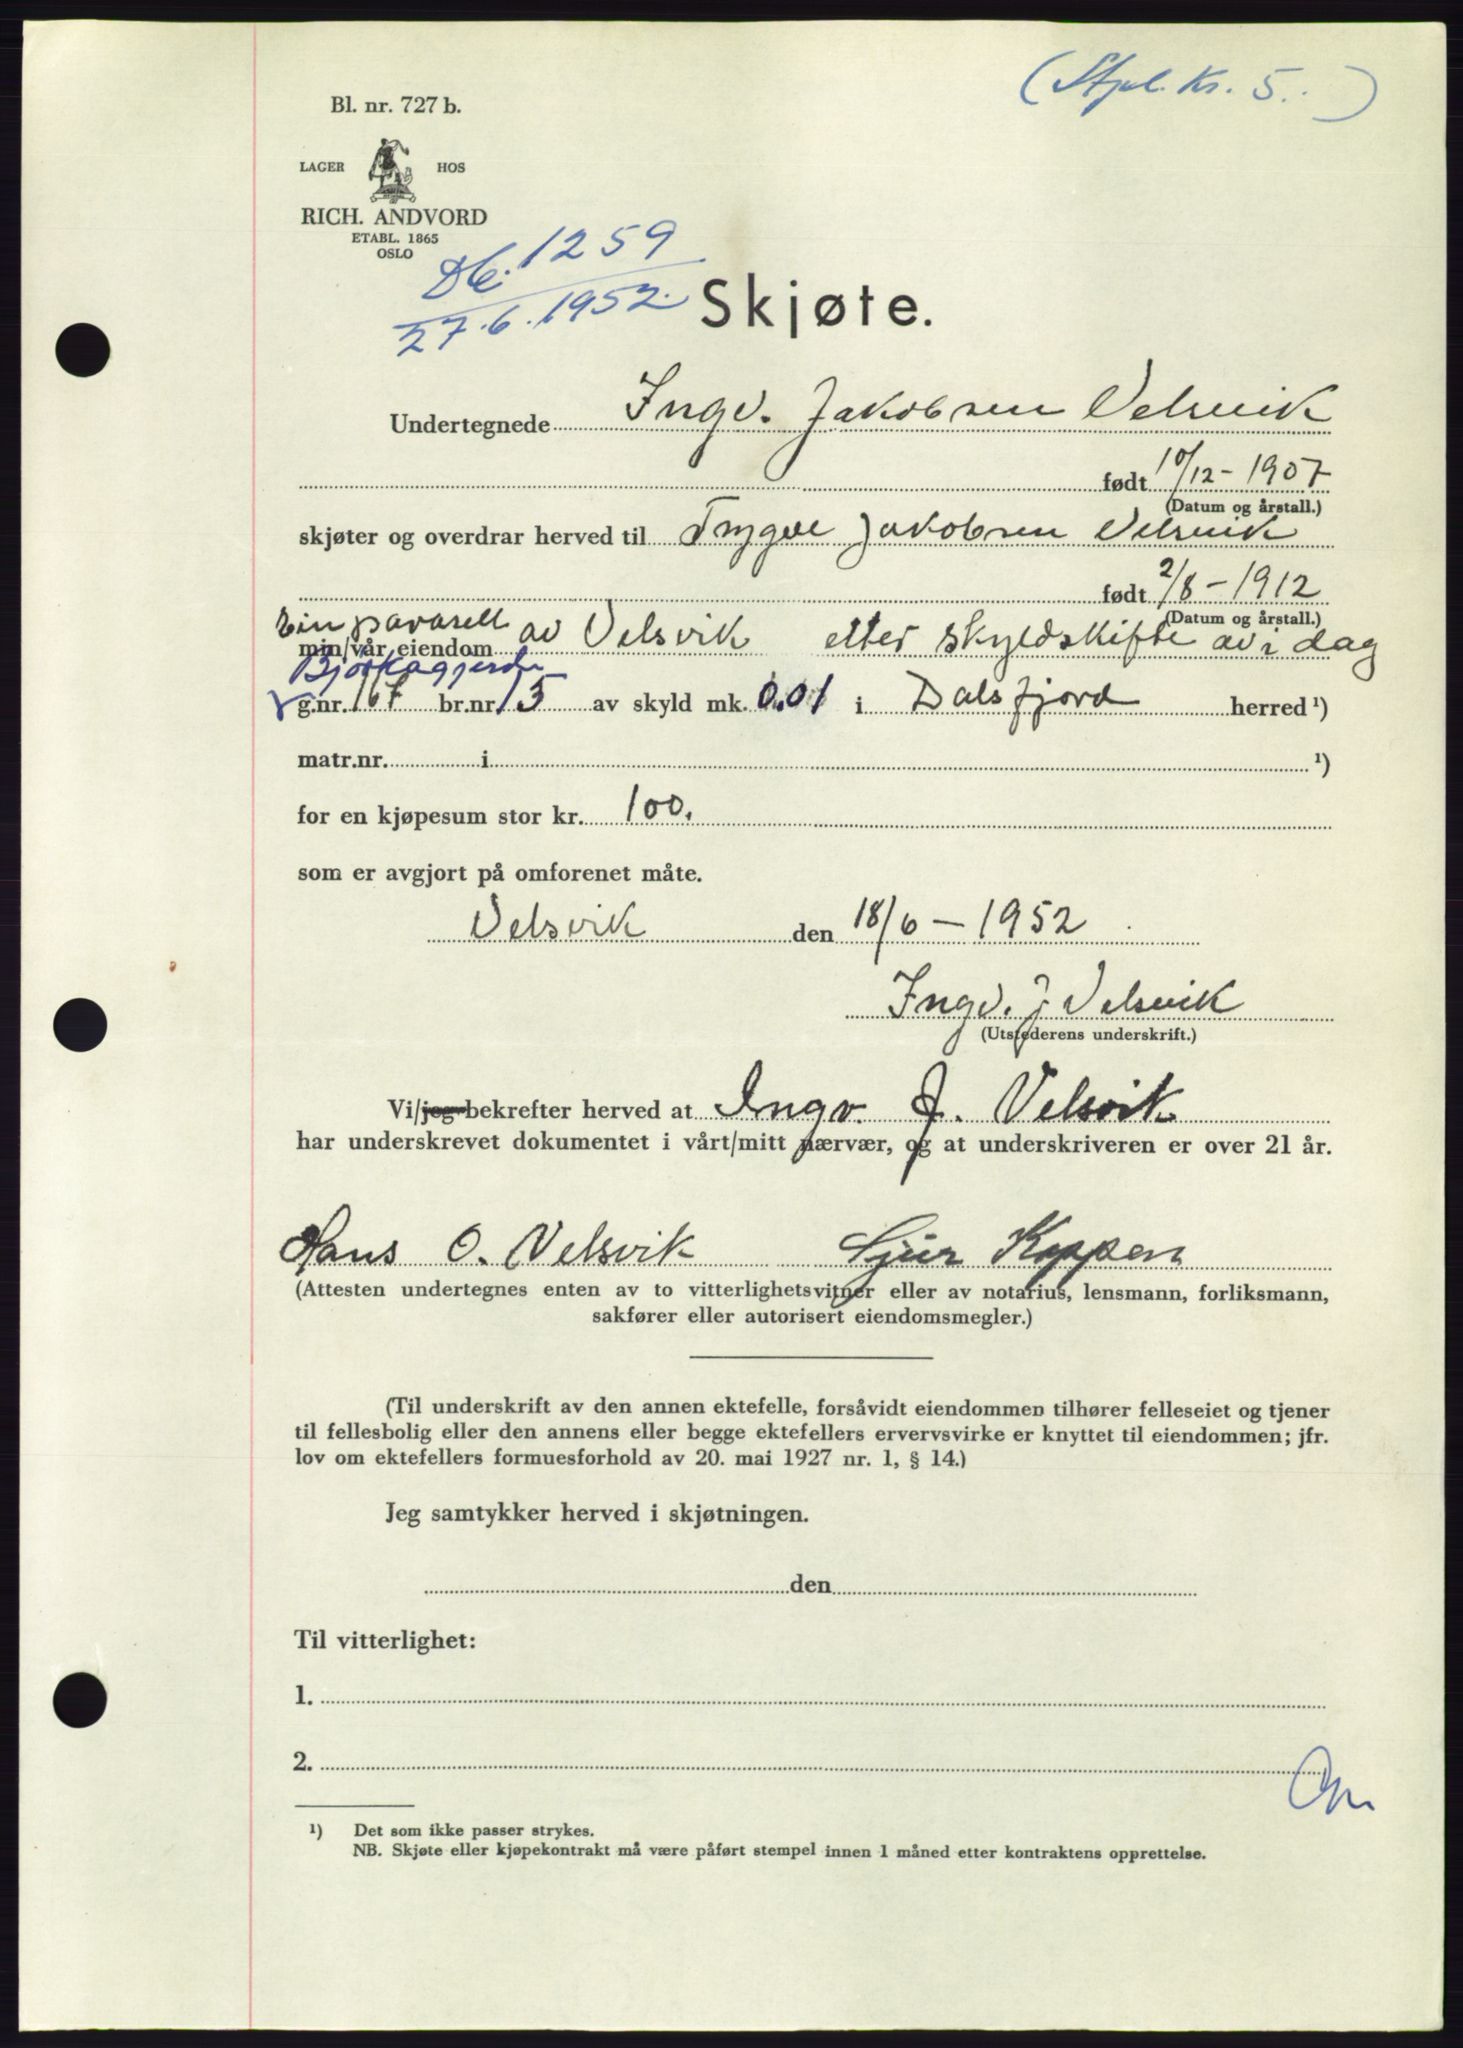 (Stpl. Kr. 5..)
Bl. nr. 727 b.
LAGER HOS
RICH. ANDVORD
ETABL. 1865
OSLO
1259
27.6.1952.
Skjøte.
Undertegnede Ingv. Jakobsen Velsvik
født 10/12-1907
(Datum og årstall.)
skjøter og overdrar herved til Trygve Jakobsen Velsvik
født 2/8-1912
(Datum og årstall.)
ein parasell
min/vår eiendom av Velsvik etter skyldskifte av i dag
g.nr. 167 br.nr. 15 av skyld mk. 0.01 i Dalsfjord herred ¹)
matr.nr. i ¹)
for en kjøpesum stor kr. 100.
som er avgjort på omforenet måte.
Velsvik den 18/6-1952
Ingv. J Velsvik
(Utstederens underskrift.)
Vi/jeg bekrefter herved at Ingv. J. Velsvik
har underskrevet dokumentet i vårt/mitt nærvær, og at underskriveren er over 21 år.
Hans O. Velsvik Sjur Koppen
(Attesten undertegnes enten av to vitterlighetsvitner eller av notarius, lensmann, forliksmann,
sakfører eller autorisert eiendomsmegler.)
(Til underskrift av den annen ektefelle, forsåvidt eiendommen tilhører felleseiet og tjener
til fellesbolig eller den annens eller begge ektefellers ervervsvirke er knyttet til eiendommen; jfr.
lov om ektefellers formuesforhold av 20. mai 1927 nr. 1, § 14.)
Jeg samtykker herved i skjøtningen.
den
Til vitterlighet:
1.
2.
¹) Det som ikke passer strykes.
NB. Skjøte eller kjøpekontrakt må være påført stempel innen 1 måned etter kontraktens opprettelse.